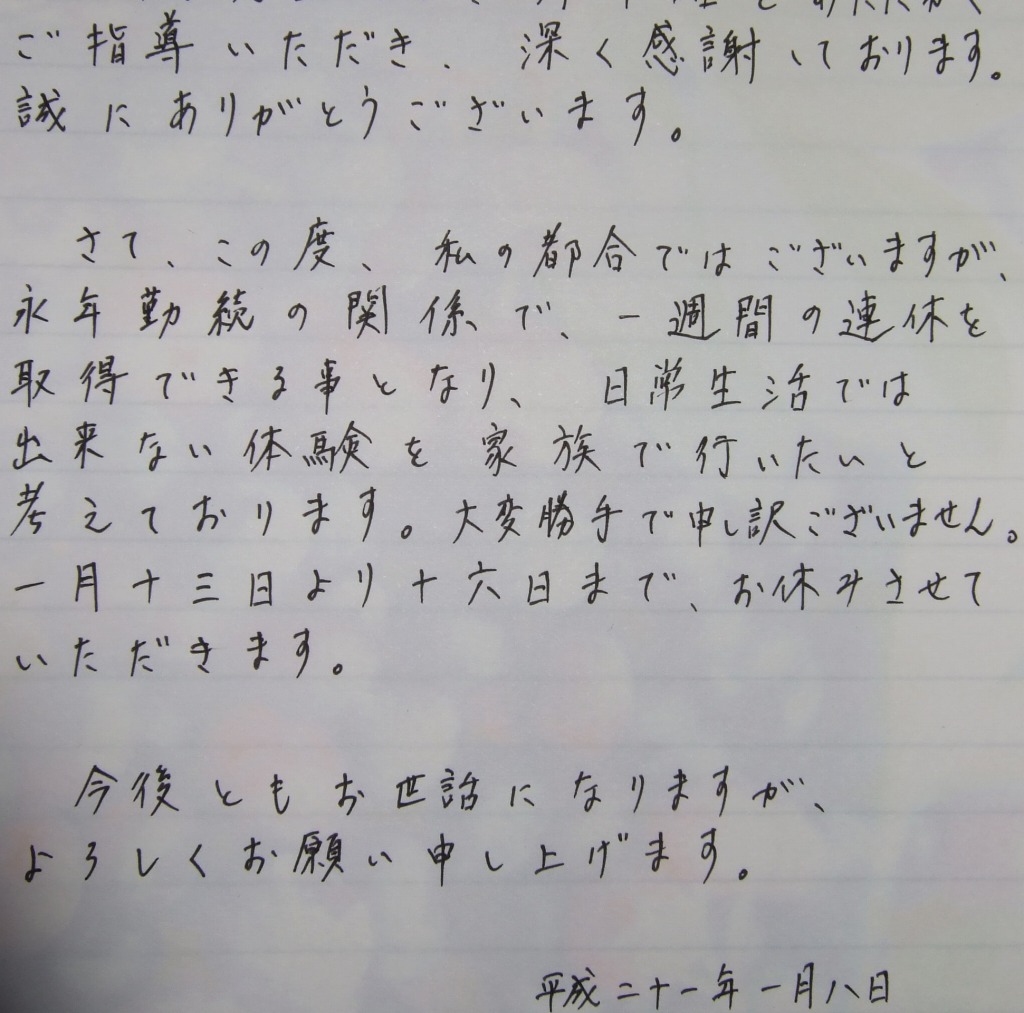 ご指導いただき、深く感謝しております。
誠にありがとうございます。
さて、この度、私の都合ではございますが、
永年勤続の関係で、一週間の連休を
取得できる事となり、日常生活では
出来ない体験を家族で行いたいと
考えております。大変勝手で申し訳ございません。
一月十三日より十六日まで、お休みさせて
いただきます。
今後ともお世話になりますが、
よろしくお願い申し上げます。
平成二十一年一月八日